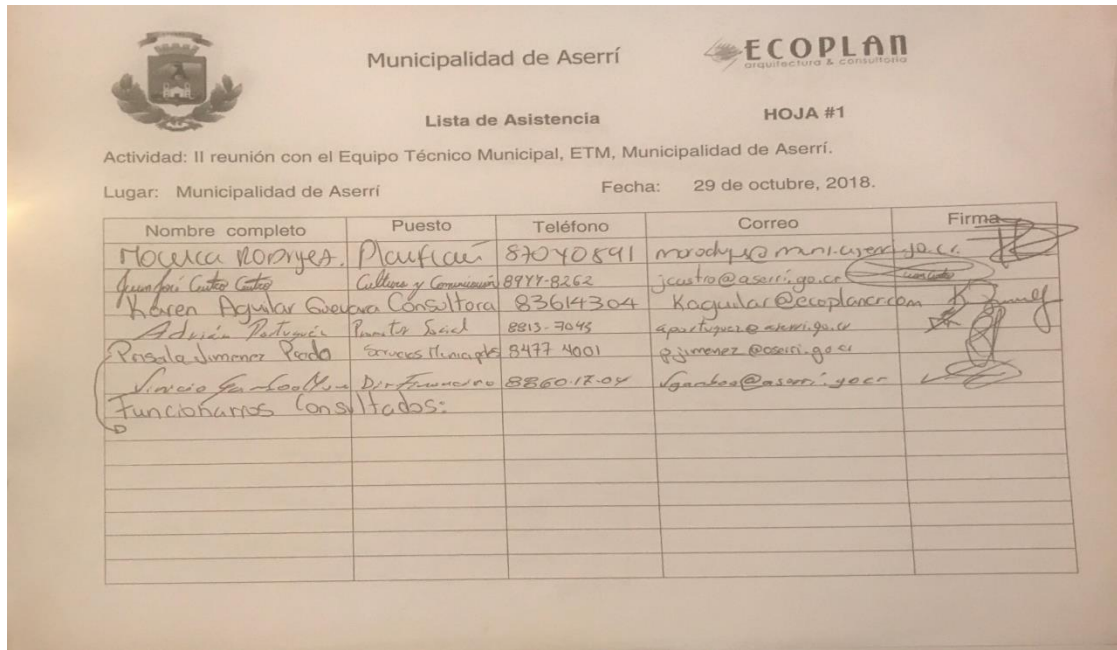 Municipalidad de Aserrí
ECOPLAN
arquitectura & consultoria
Lista de Asistencia
HOJA #1
Actividad: II reunión con el Equipo Técnico Municipal, ETM, Municipalidad de Aserrí.
Lugar: Municipalidad de Aserrí Fecha: 29 de octubre, 2018.
Nombre completo Puesto Teléfono Correo Firma
87040891
Juan José Castro Castro Cultura y Comunicación 8977-8262 jcastro@aserri.go.cr
Karen Aguilar Guevara Consultora 83614304 Kaguilar@ecoplancr.com
Adrián Portuguéz Social 8813-7045
Jimenez Servicios Municipales 8477 4001 pjimenez@aserri.go.cr
Vinicio Gamboa Dir Financiero 8860-17-04
Funcionarios Consultados: